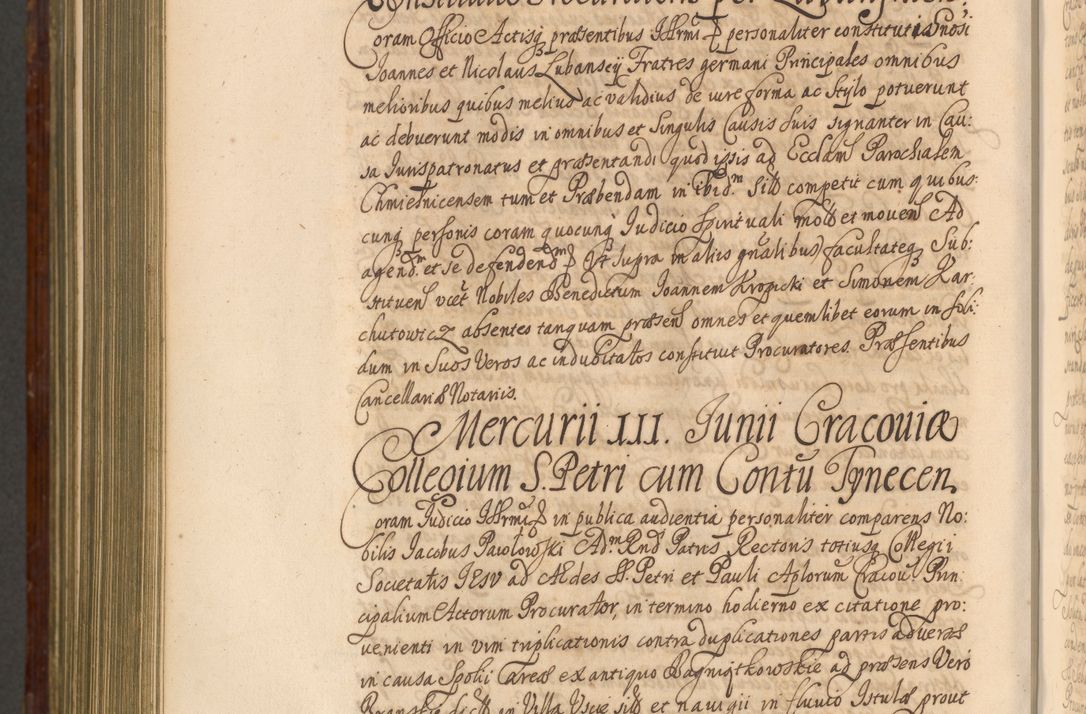 Constitutio Procuratoris per Lubanscien:
Coram Officio Actisq; præsentibus Illrmi & personaliter constituti Gnosi
Joannes et Nicolaus Lubanscÿ Fratres germani Principales omnibus
melioribus quibus melius ac validius de iure forma ac stylo potuerunt
ac debuerunt modis in omnibus et singulis Causis suis signanter in Cau:
sa Jurispatronatus et præsentandi quod ipsis ad Ecclam Parochialem
Chmielnicensem tum et Præbendam in ibid.m sitã competit cum quibus:
cunq; personis coram quocunq; Judicio spirituali motã et moven Ad
agend.m et se defendend.m & Vt supra in aliis gnalibus facultateq; Sub:
stituen vcet Nobiles Benedictum Joannem Kropicki et Simonem Kar:
chutowicz absentes tanquam præsen omnes et quemlibet eorum in soli:
dum in suos veros ac indubitatos constituit Procuratores. Præsentibus
Cancellariæ Notariis.
Mercurii III. Junii Cracoviæ
Collegium S. Petri cum Contũ Tynecen
Coram Judicio Illrmi & in publica audientia personaliter comparens No:
bilis Jacobus Pawłowski Ad.m Rnd Patris Rectoris totiusq; Collegii
Societatis JESV ad Ædes SS. Petri et Pauli Aplorum Cracov Prin:
cipalium Actorum Procurator, in termino hodierno ex citatione pro:
venienti in vim triplicationis contra duplicationes partis adversæ
in causa Spolii Areæ ex antiquo Bagniątkowskie ad præsens Vero
dictæ in Villa Vscie sitæ et navigii in fluvio Istulæ prout